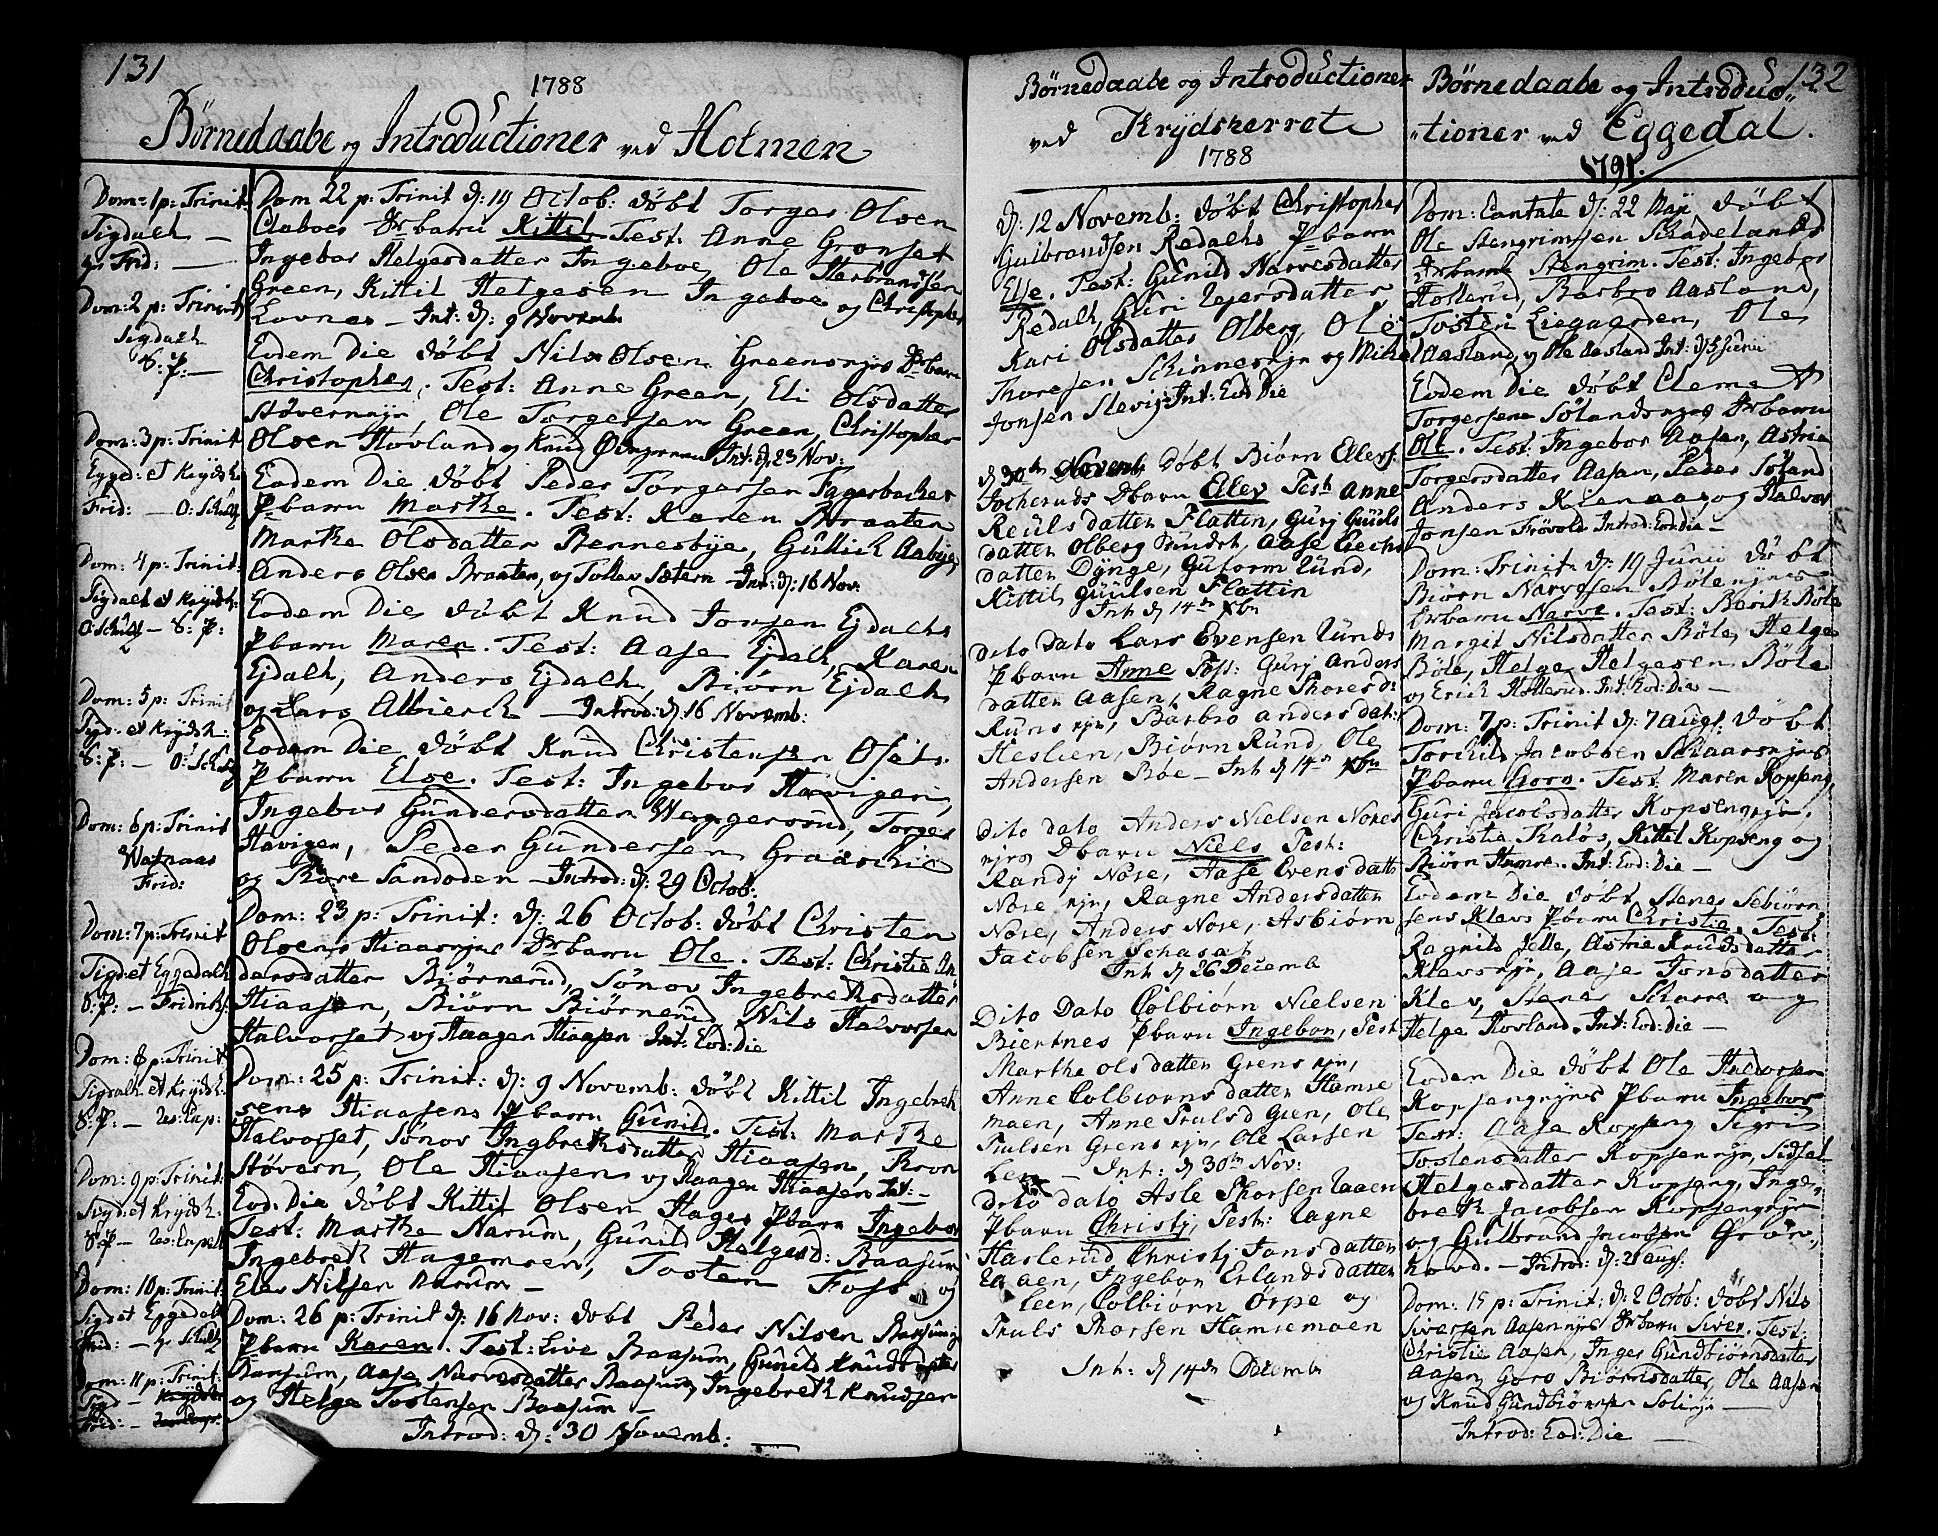 131
1788
Børnedaabe og Introductioner ved Holmen
Dom: 1 p: Trinit:
Sigdalh —
Frid: —
Dom: 2 p: Trinit
Sigdalh
S: P: —
Dom: 3 p: Trinit
Egged: et Krydsh:
Frid: — O: Schultz
Dom: 4 p: Trinit:
Sigdalh et Krydsh:
O Schultz — S: P:
Dom: 5 p: Trinit
Sigd: et Krydsh:
S: P: — O: Schultz
Dom: 6 p: Trinit
Watnaas
Frid:
Dom: 7 p: Trinit
Sigd et Eggedalh
S: P: — Fridrichs
Dom: 8 p: Trinit
Sigdalh et Krydsh:
S: P: — Res: Cap:
Dom: 9 p: Trinit:
Sigd et Krydsh:
S: P — Res: Capell
Dom: 10 p: Trinit:
Sigd et Eggedal
Frid: — Schultz
Dom: 11 p: Trinit:
Sigd —
Frid: —
Dom 22 p: Trinit d: 19 Octob: døbt Torger Olsen
Claboes Drbarn Kittil. Test: Anne Grønset
Ingebor Helgesdatter Ingeboe, Ole Herbransen
Green, Kittil Helgesen Ingeboe og Christopher
Lovnes — Int: d: 9 Novemb
Eodem Die døbt Nils Olsen Greensejes Drbarn
Christopher. Test: Anne Green, Eli Olsdatter
Støvernejn, Ole Torgersen Green, Christopher
Olsen Hovland og Knud Int: d: 23 Nov:
Eodem Die døbt Peder Torgersen Fagerbackes
Pbarn Marthe. Test: Karen Braaten
Marthe Olsdatter Bennesbye, Gullich Aabye,
Anders Olsen Braaten, og Tollev Sætern Int: d: 16 Nov:
Eodem Die døbt Knud Jonsen Ejdalhs
Pbarn Maren. Test: Aase Ejdalh, Karen
Ejdalh, Anders Ejdalh, Biørn Ejdalh
og Lars Albierch — Introd: d: 16 Novemb:
Eodem Die døbt Knud Christensen
Pbarn Else. Test: Ingebor Havigen,
Ingebor Gundersdatter Waggersrud, Torger
Havigen, Peder Gundersen
og Thore Sandoden — Introd: d: 29 Octob:
Dom: 23 p: Trinit: d: 26 Octob: døbt Christen
Olsens Hiaasnejes Drbarn Ole. Test: Christie An
darsdatter Biørnerud, Sønov Ingebrethsdatter
Hiaasen, Biørn Biørnerud, Nils Halvorsen
Halvorset og Haagen Hiaasen Int: Eod: Die
Dom: 25 p: Trinit: d: 9 Novemb: døbt Kittil Ingebreth
sens Hiaasens Pbarn Gunild. Test: Marthe
Halvorset, Sønov Ingbrethsdatter Hiaasen, Bron
Støvern, Ole Hiaasen og Haagen Hiaasen Int: —
Eod: Die døbt Kittil Olsen Hages Pbarn Ingebor
Test: Marthe Narum, Gunild Helgesd: Baasum
Ingebreth Hagemoen, Tosten Foss og
Elev Nilsen Narum —
Dom: 26 p: Trinit d: 16 Nov: døbt Peder Nilsen Baasum
Pbarn Karen. Test: Live Baasum, Gunild Knudsdatter
Baasum, Aase Narvesdatter Baasum, Ingebreth Knudsen
og Helge Tostensen Baasum —
Introd: d: 30 Novemb: —
Børnedaabe og Introductioner
ved Krydsherret
1788
d: 12 Novemb: døbt Christopher
Gulbrandsen Redalhs Pbarn
Else. Test: Gunild Narvesdatter
Redalh, Guri Ejersdatter
Kari Olsdatter Olberg, Ole
Thoresen Schinnesejn og Mikel
Jonsen Slevij: Int: Eod Die
d 30th Novemb døbt Biørn Ellefs:
Jocheruds Dbarn Ellev Test: Anne
Reulsdatter Flattin, Gurj Guuls
datter Olberg Sundet, Aase Erichs
datter Dynge, Guttorm Lund,
Kittil Guulsen Flattin
Int: d 14th Xbr
Dito Dato Lars Evensen Lunds
Pbarn Anne Test: Gurj Anders
datter Aasen, Ragne Thoresd:
Runs ejn, Barbro Andersdat:
Heslien, Biørn Rund, Ole
Andersen Bøe — Int d 14th Xbr
Dito dato Anders Nielsen Nores
ejes Dbarn Niels Test:
Randj Nore, Aase Evensdatt:
Nore ejn, Ragne Andersdatter
Nore, Anders Nore, Asbiørn
Jacobsen Schasah
Int d 26 Decemb
Dito Dato Colbiørn Nielsen
Biertnes Pbarn Ingebor, Test
Marthe Olsdatter Grens ejn,
Anne Colbiornsdatter Hamre
moen, Anne Trulsd Gien, Ole
Trulsen Grens ejn, Ole Larsen
Leer — Int: d 30th Nov:
Dito dato Asle Thorsen Laaen
Pbarn Christj, Test: Lagne
Haslerud Christj Jonsdatter
Laaen, Ingebor Erlandsdatter
leer, Colbiørn Ørpe og
Truls Thorsen Hamremoen
Int: d 14de Decemb
132
Børnedaabe og Introduc"
"tioner ved Eggedal.
1791.
Dom: Cantate d: 22 Maji døbt
Ole Stengrimsen Schadelands
Drbarn Stengrim. Test: Ingebor
Hollerud, Barbro Aasland,
Tosten Liegaarden, Ole
Aasland, og Ole Aasland Int: d: 5 Junii
Eodem Die døbt Clemet
Torgersens Sølandsejes Drbarn
Ole. Test: Ingebor Aasen, Astrie
Torgersdatter Aasen, Peder Søland
Anders og Halvor
Jonsen Frøvold Introd: Eod: Die —
Dom: Trinit: d: 19 Junii døbt
Biørn Narvesen Bølenejes
Drbarn Narve. Test: Berith Bøle
Margit Nilsdatter Bøle, Helge
Bøle, Helge Helgesen Bøle
og Erich Hollerud. Int: Eod: Die —
Dom: 7 p: Trinit d: 7 Augs: døbt
Torchild Jacobsen Schaarsnejes
Pbarn Goro. Test: Maren Kopseng,
Guri Jacobsdatter Kopsengejn.
Christie Traløs, Kittil Kopseng og
Biørn Hamre. Int: Eod: Die —
Eodem Die døbt Stenes Sebiørn
sens Klevs Pbarn Christie. Test:
Ragnild Jelle, Astrie Knudsdatter
Klevsejn, Aase Jonsdatter
Klev, Stener Scharre og
Helge Hovland. Int: Eod: Die —
Eodem Die døbt Ole Halvorsen
Kopsengejes Pbarn Ingebor
Test: Aase Kopseng, Sigri
Tostensdatter Kopsengejn, Sidsel
Helgesdatter Kopseng, Inge-
breth Jacobsen Kopsengejn
og Gulbrand Jacobsen Grøn,
hovd. — Introd: d: 21 Augs:
Dom: 15 p: Trinit: d: 2 Octob: døbt Nils
Siversen Aasennejes Drbarn Siver. Test:
Christie Aasen, Inger Gundbiørnsdatter
Aasen, Goro Biørnsdatter, Ole Aasen
og Knud Gundbiørnsen Solieje —
Introd: Eod: Die —